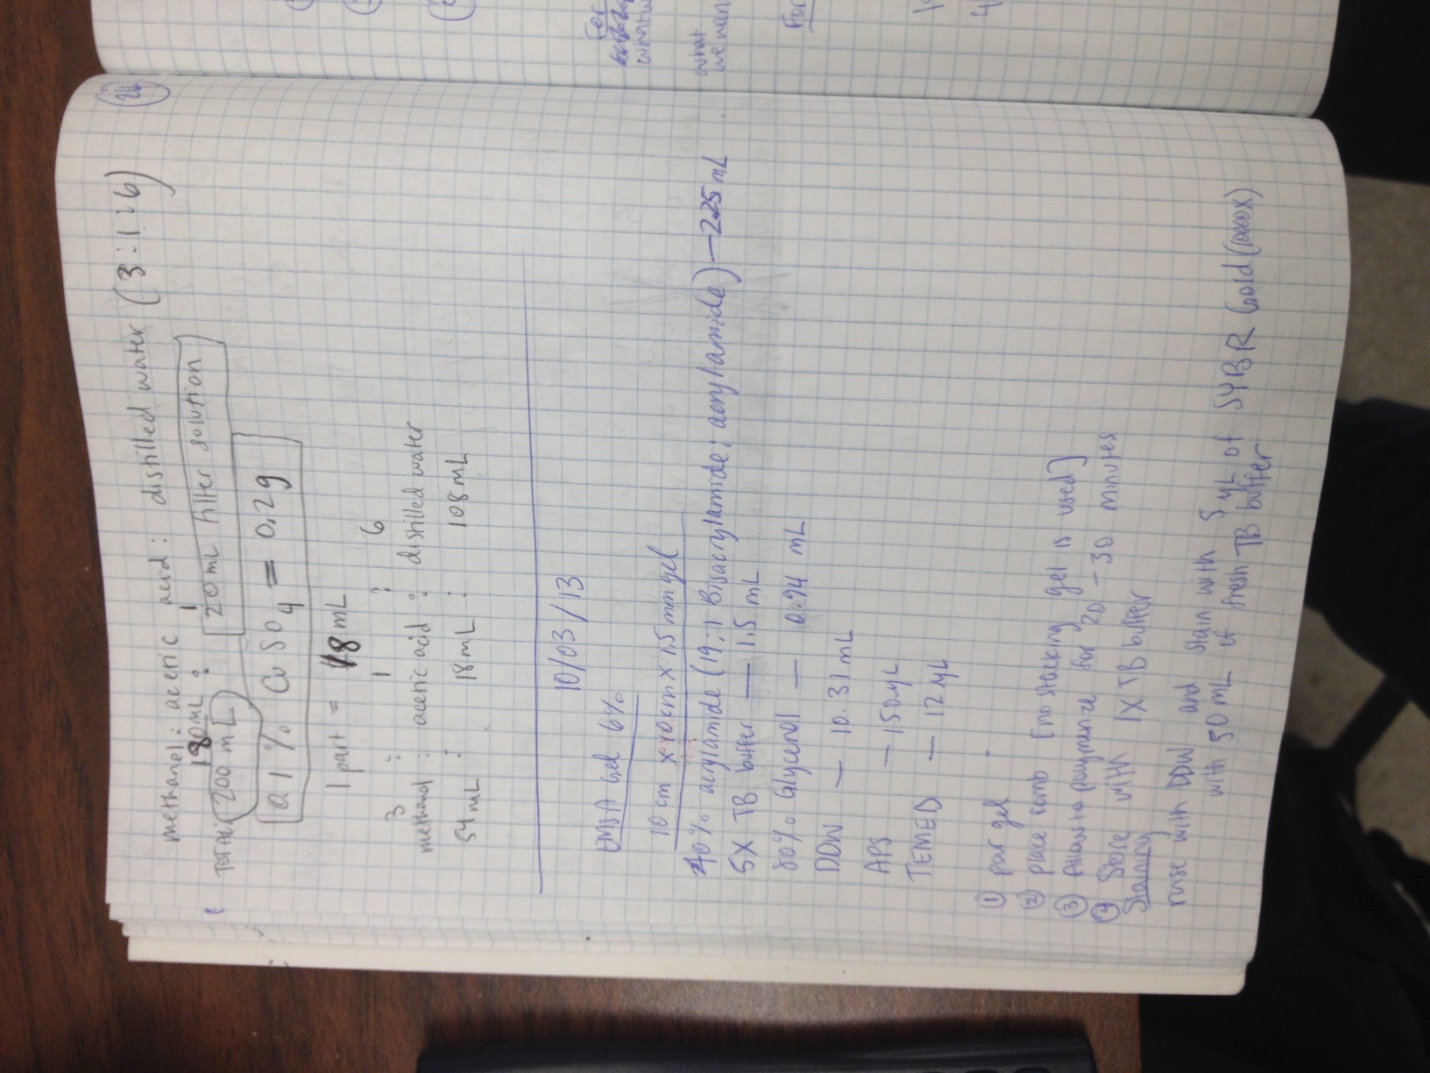 26
methanol : acetic acid : distilled water (3:1:6)
180mL : 1
TOTAL: 200 mL 20 mL filter solution
0.1% CuSO4 = 0.2g
1 part = 18 mL
3 : 1 : 6
methanol : acetic acid : distilled water
54mL : 18mL : 108mL
10/03/13
EMSA Gel 6%
10cm x 10cm x 1.5mm gel
40% acrylamide (19:1 Bisacrylamide: acrylamide) — 2.25 mL
5X TB buffer — 1.5 mL
80% Glycerol — 0.94 mL
DDW — 10.31 mL
APS — 150µL
TEMED — 12µL
① pour gel
② place comb [no stacking gel is used]
③ Allow to polymerize for 20 - 30 minutes
④ Store with 1X TB buffer
Staining
rinse with DDW and stain with 5µL of SYBR Gold
with 50 mL of fresh TB buffer
For
what
we
For